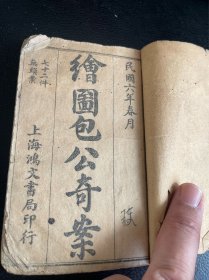 民國六年春月
繪圖包公奇案
七十二件
無頭案
上海鴻文書局印行